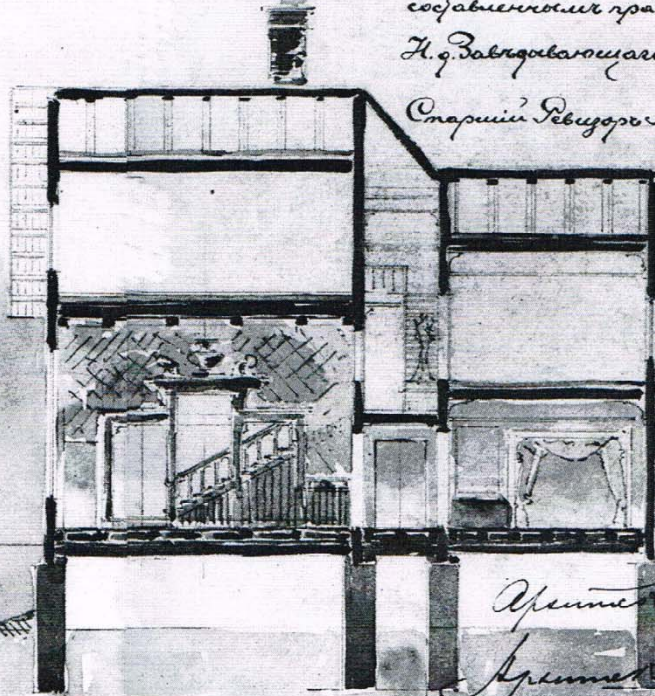 составленнымъ пра
И. д. Завѣдывающаго
Старшій Ревизоръ
Архитек
Архитек